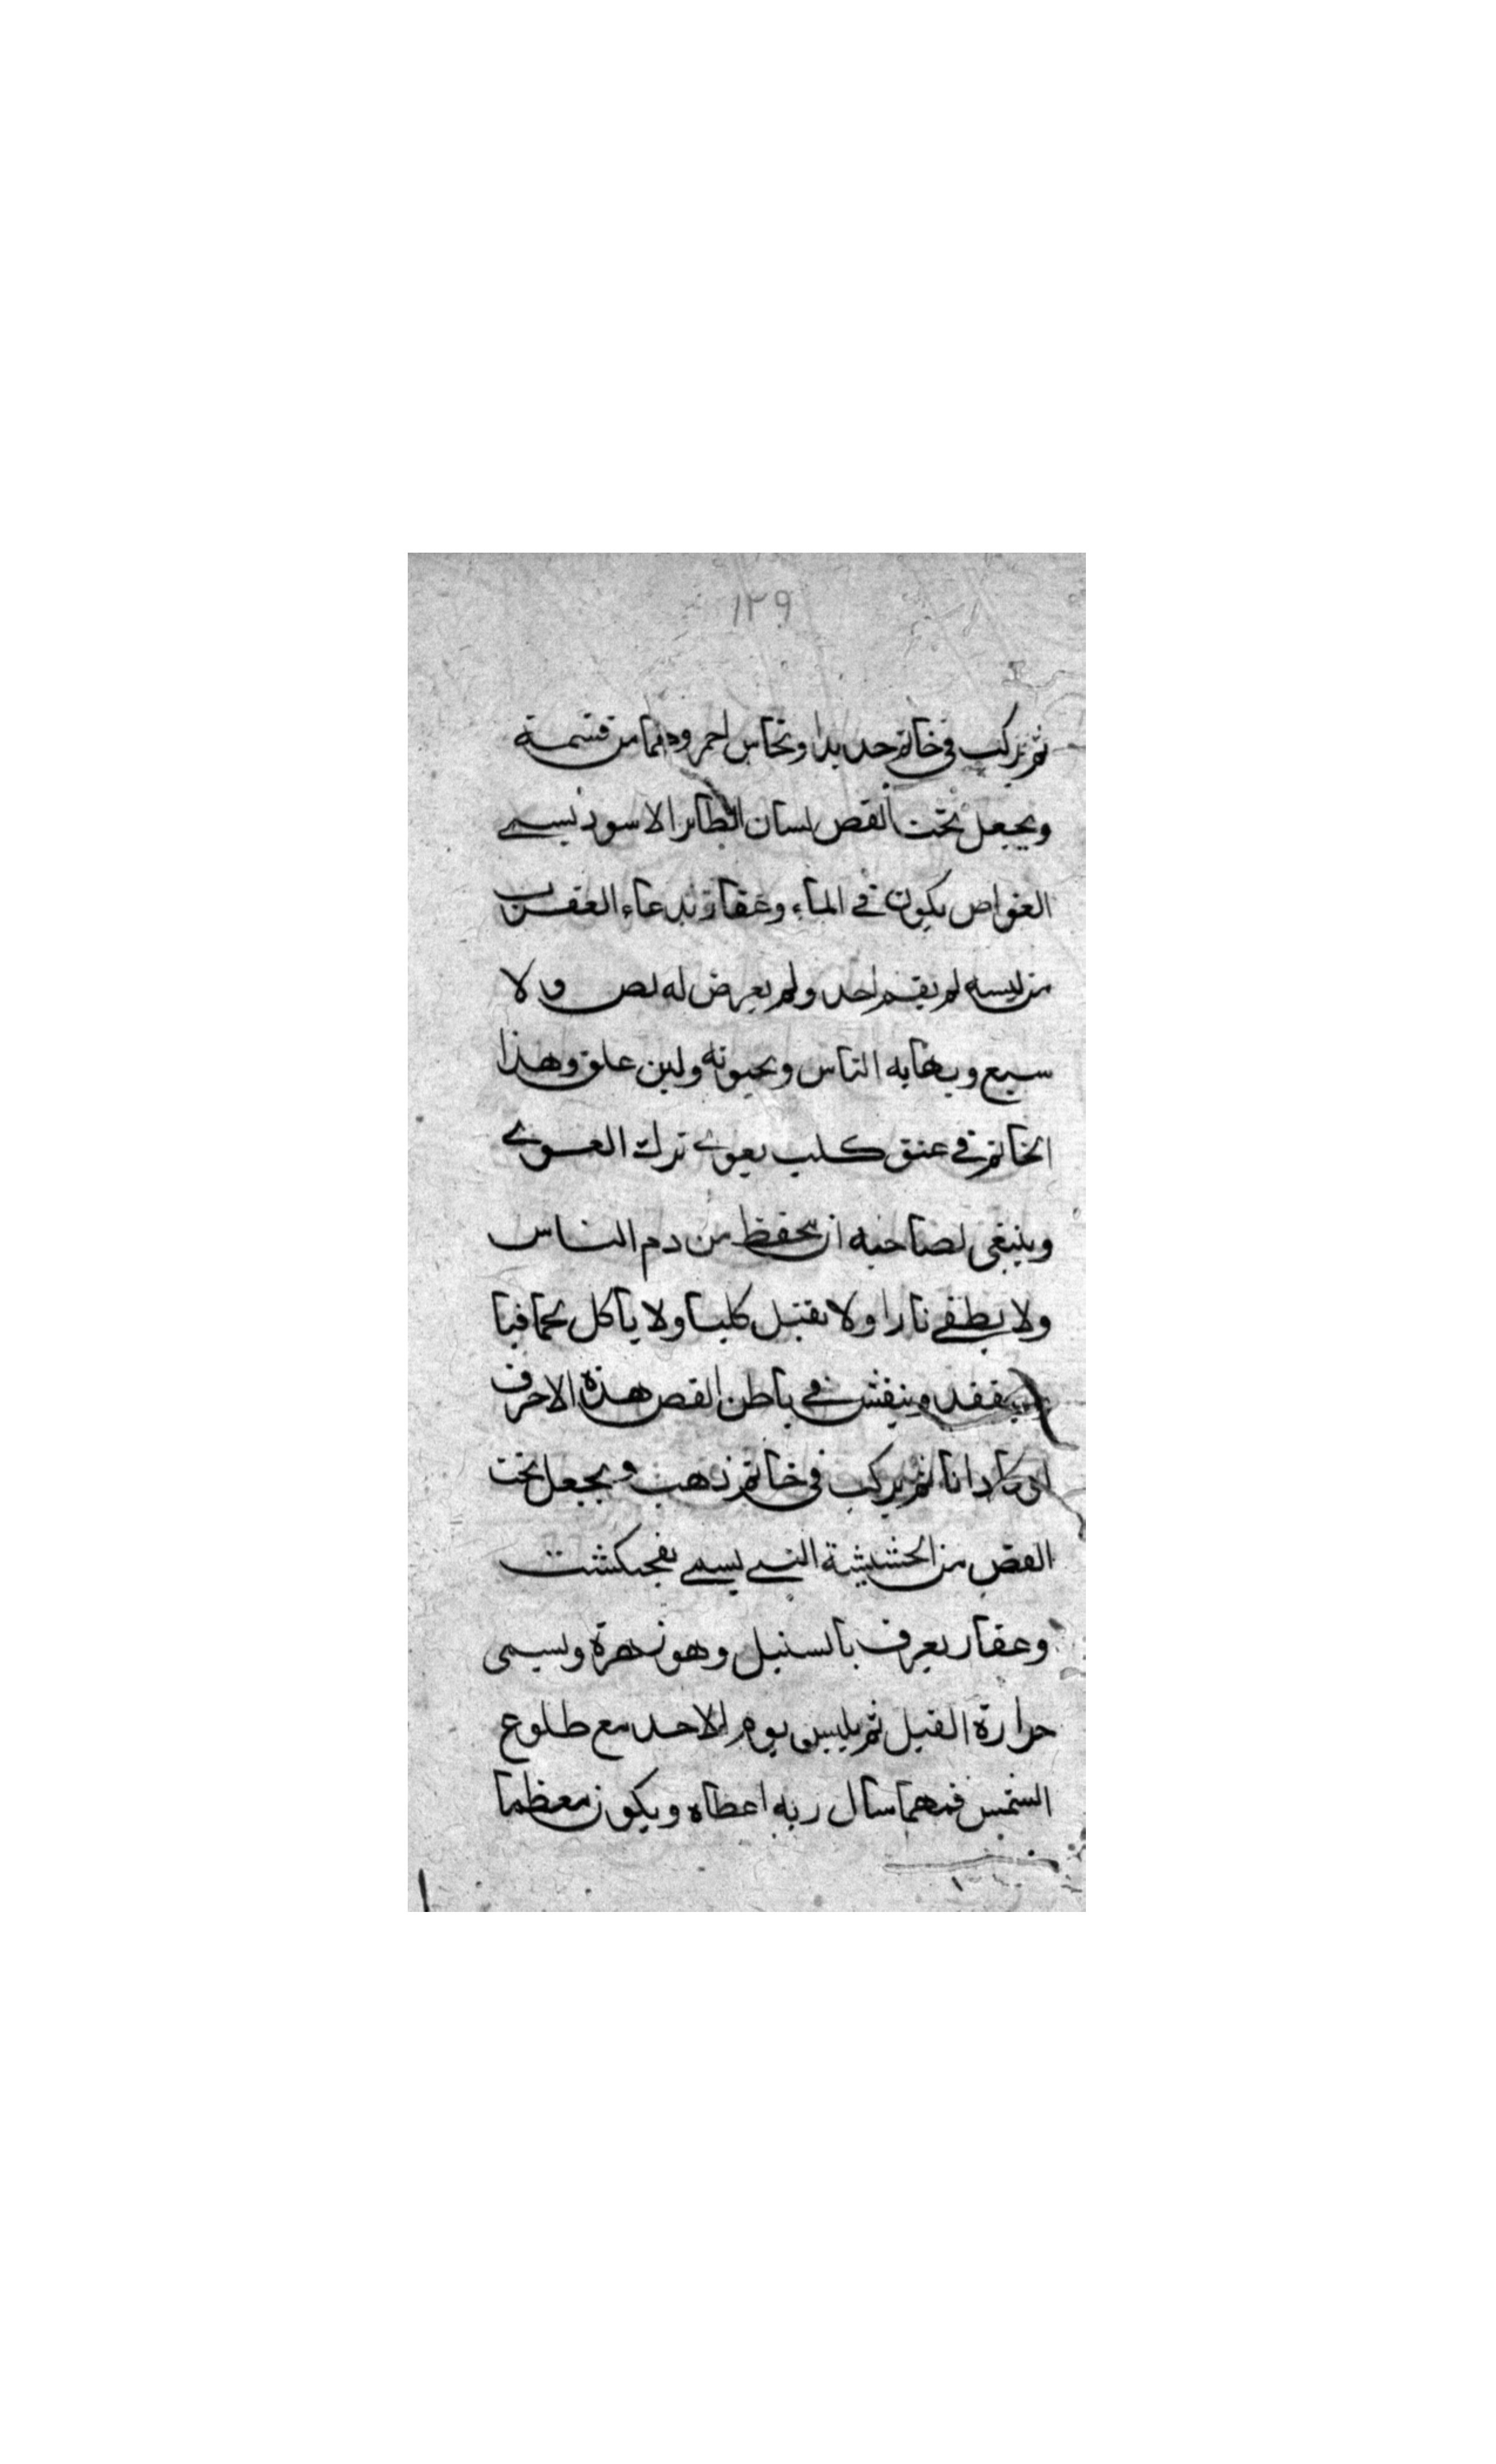 ١٢٩
ثم يركب في خاتم حديدا ونحاس احمر وهما من قسمة
ويجعل تحت الفص لسان الطائر الاسود يسمى
الغواص يكون في الماء وعقار يدعاء العقرب
من لبسه لم يقم احد ولم يعرض له لص ولا
سبع ويهابه الناس ويحبونه ولين علق وهذا
الخاتم في عنق كلب يعوى ترك العوى
وينبغى لصاحبه ان يتحفظ من دم الناس
ولا يطفى نارا ولا يقتل كلبا ولا ياكل لحما
وينقش في باطن الفص هذه الاحرف
ثم يركب في خاتم ذهب ويجعل تحت
الفص من الحشيشة التى يسمى بفجنكشت
وعقار يعرف بالسنبل وهو زهرة ويسمى
حرارة الفيل ثم يلبس يوم الاحد مع طلوع
الشمس فمهما سال ربه اعطاه ويكون معظما